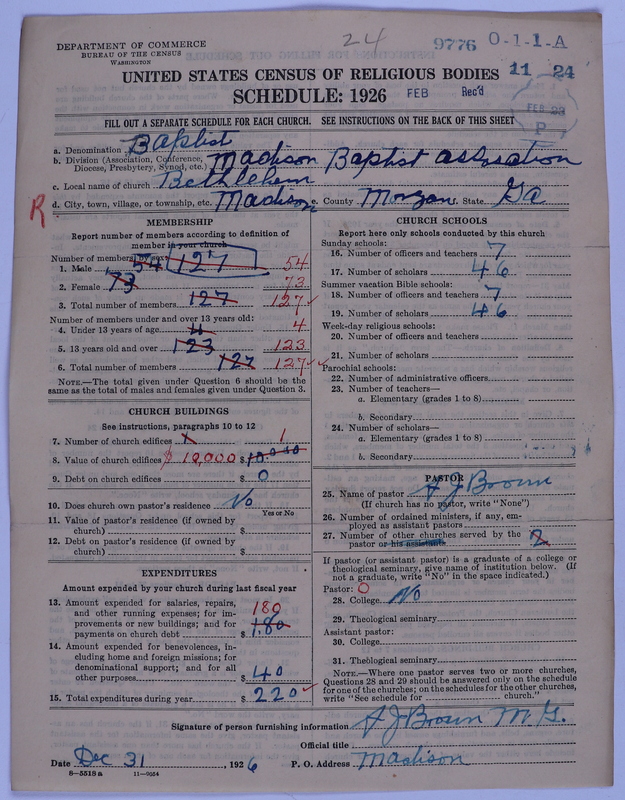 24
DEPARTMENT OF COMMERCE
BUREAU OF THE CENSUS
WASHINGTON
9776 O-1-1-A
UNITED STATES CENSUS OF RELIGIOUS BODIES
11 24
SCHEDULE: 1926
FEB Rec'd
FEB 23
P
FILL OUT A SEPARATE SCHEDULE FOR EACH CHURCH. SEE INSTRUCTIONS ON THE BACK OF THIS SHEET
a. Denomination Baptist
b. Division (Association, Conference, Diocese, Presbytery, Synod, etc.) Madison Baptist association
c. Local name of church Bethlehem
R d. City, town, village, or township, etc. Madison e. County Morgan f. State Ga
MEMBERSHIP
Report number of members according to definition of
member in your church
Number of members by sex:
1. Male 54 127 54
2. Female 73 73
3. Total number of members 127 127
Number of members under and over 13 years old:
4. Under 13 years of age 4 4
5. 13 years old and over 123 123
6. Total number of members 127 127
NOTE.—The total given under Question 6 should be the
same as the total of males and females given under Question 3.
CHURCH BUILDINGS
See instructions, paragraphs 10 to 12
7. Number of church edifices 1
8. Value of church edifices $10,000 $
9. Debt on church edifices $ 0
10. Does church own pastor's residence No
Yes or No
11. Value of pastor's residence (if owned by
church) $
12. Debt on pastor's residence (if owned by
church) $
EXPENDITURES
Amount expended by your church during last fiscal year
13. Amount expended for salaries, repairs,
and other running expenses; for im-
provements or new buildings; and for
payments on church debt $ 180 180
14. Amount expended for benevolences, in-
cluding home and foreign missions; for
denominational support; and for all
other purposes $ 40
15. Total expenditures during year $ 220
CHURCH SCHOOLS
Report here only schools conducted by this church
Sunday schools:
16. Number of officers and teachers 7
17. Number of scholars 46
Summer vacation Bible schools:
18. Number of officers and teachers 7
19. Number of scholars 46
Week-day religious schools:
20. Number of officers and teachers
21. Number of scholars
Parochial schools:
22. Number of administrative officers
23. Number of teachers—
a. Elementary (grades 1 to 8)
b. Secondary
24. Number of scholars—
a. Elementary (grades 1 to 8)
b. Secondary
PASTOR
25. Name of pastor A J Brown
(If church has no pastor, write "None")
26. Number of ordained ministers, if any, em-
ployed as assistant pastors
27. Number of other churches served by the
pastor or his assistant 2
If pastor (or assistant pastor) is a graduate of a college or
theological seminary, give name of institution below. (If
not a graduate, write "No" in the space indicated.)
Pastor: 0
28. College No
29. Theological seminary
Assistant pastor:
30. College
31. Theological seminary
NOTE.—Where one pastor serves two or more churches,
Questions 28 and 29 should be answered only on the schedule
for one of the churches; on the schedules for the other churches,
write "See schedule for church."
Signature of person furnishing information A J Brown M. G.
Official title
Date Dec 31, 1926 P. O. Address Madison
8—5518a 11—9054